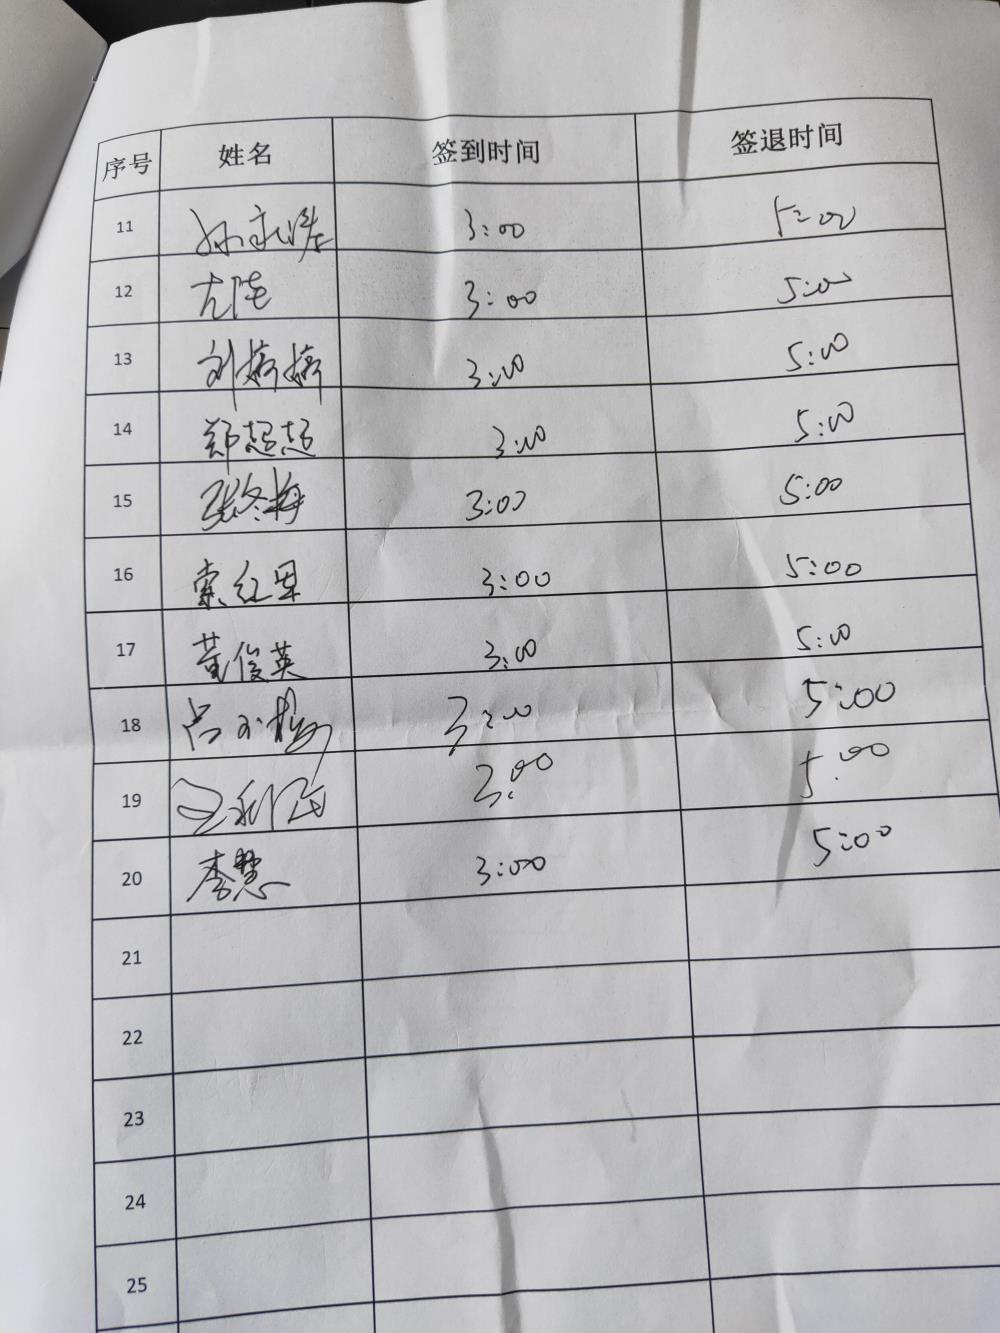 序号 姓名 签到时间 签退时间
11 3:00 5:00
12 3:00 5:00
13 刘婷婷 3:00 5:00
14 郑超超 3:00 5:00
15 张冬梅 3:00 5:00
16 索红恩 3:00 5:00
17 董俊英 3:00 5:00
18 3:00 5:00
19 3:00 5:00
20 李慧 3:00 5:00
21
22
23
24
25